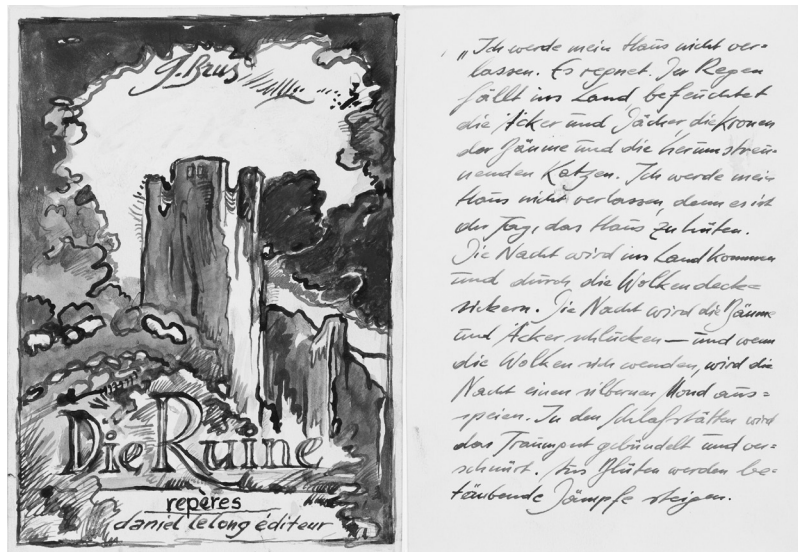 G. Brus
Die Ruine
repères
daniel lelong éditeur
„Ich werde mein Haus nicht ver=
lassen. Es regnet. Der Regen
fällt ins Land, befeuchtet
die Äcker und Dächer, die Kronen
der Bäume und die herumstreu=
nenden Katzen. Ich werde mein
Haus nicht verlassen, denn es ist
der Tag, das Haus zu hüten.
Die Nacht wird ins Land kommen
und durch die Wolkendeck=
sickern. Die Nacht wird die Bäume
und Äcker schlucken — und wenn
die Wolken sich wenden, wird die
Nacht einen silbernen Mond aus=
speien. In den Schlafstätten wird
das Traumgut gebündelt und ver=
schnürt. Aus Blüten werden be=
täubende Dämpfe steigen.